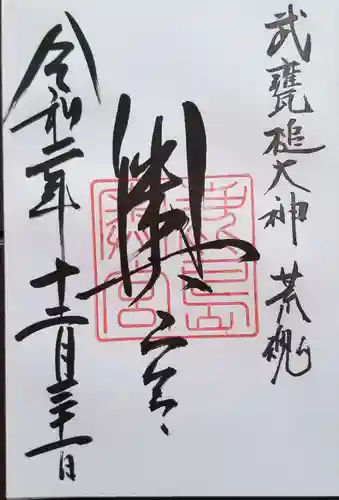 武甕槌大神 荒魂
奥宮
令和二年十二月三十一日